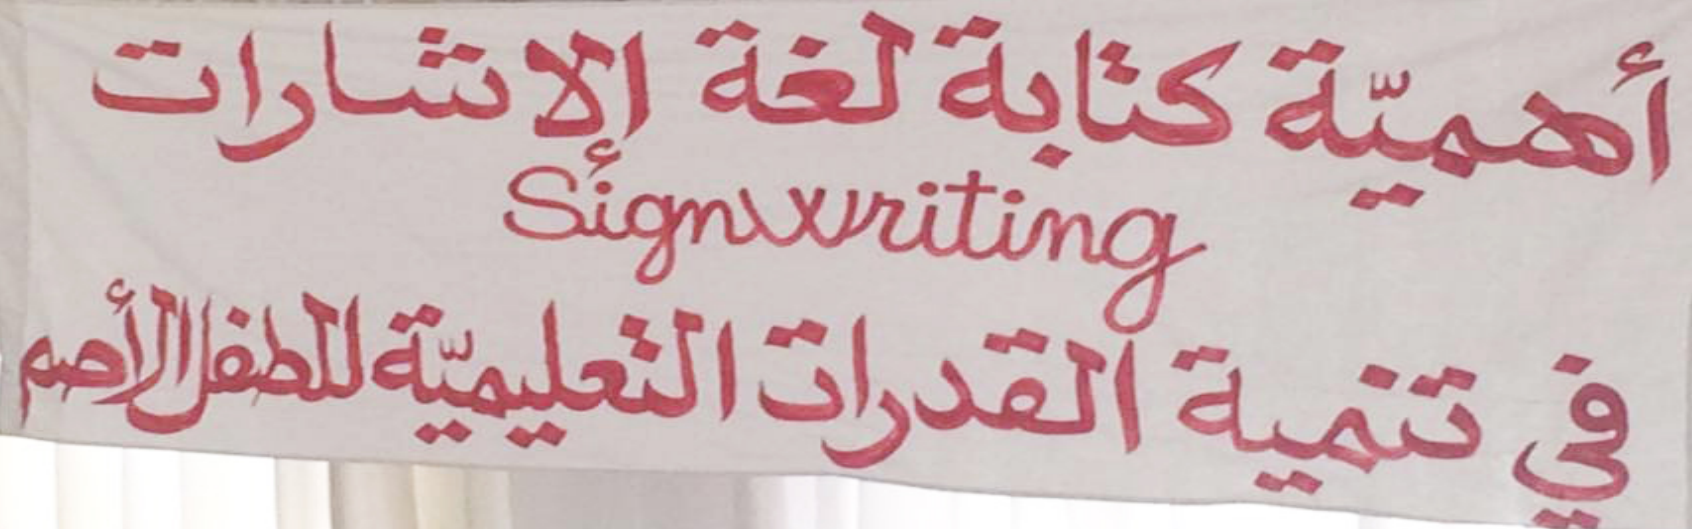 أهميّة كتابة لغة الإشارات
Signwriting
في تنمية القدرات التعليميّة للطفل الأصم